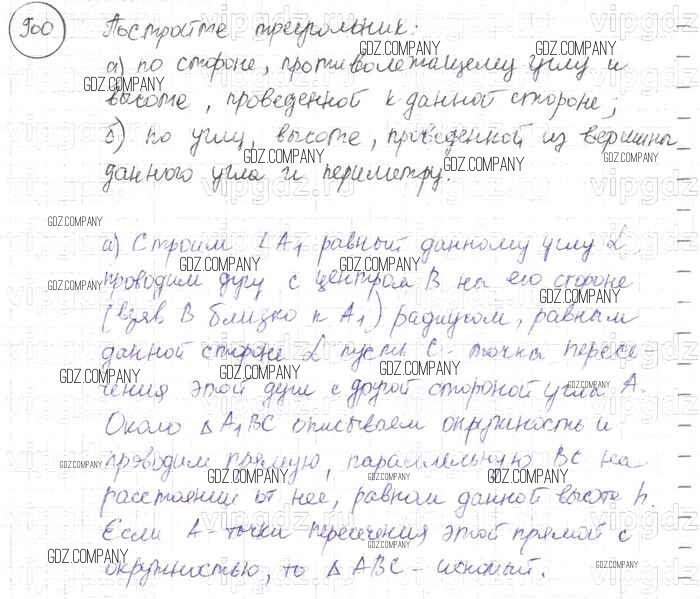 900 Постройте треугольник:
а) по стороне, противолежащему углу и
высоте, проведенной к данной стороне;
б) по углу, высоте, проведенной из вершины
данного угла и периметру.
а) Строим ∠A₁ равный данному углу α.
проводим дугу с центром B на его стороне
(взяв B близко к A₁) радиусом, равным
данной стороне α пусть C - точка пересе-
чения этой дуги с другой стороной угла A.
Около △A₁BC описываем окружность и
проводим прямую, параллельную BC на
расстоянии от нее, равном данной высоте h.
Если A - точка пересечения этой прямой с
окружностью, то △ABC - искомый.
GDZ.COMPANY
vipgdz